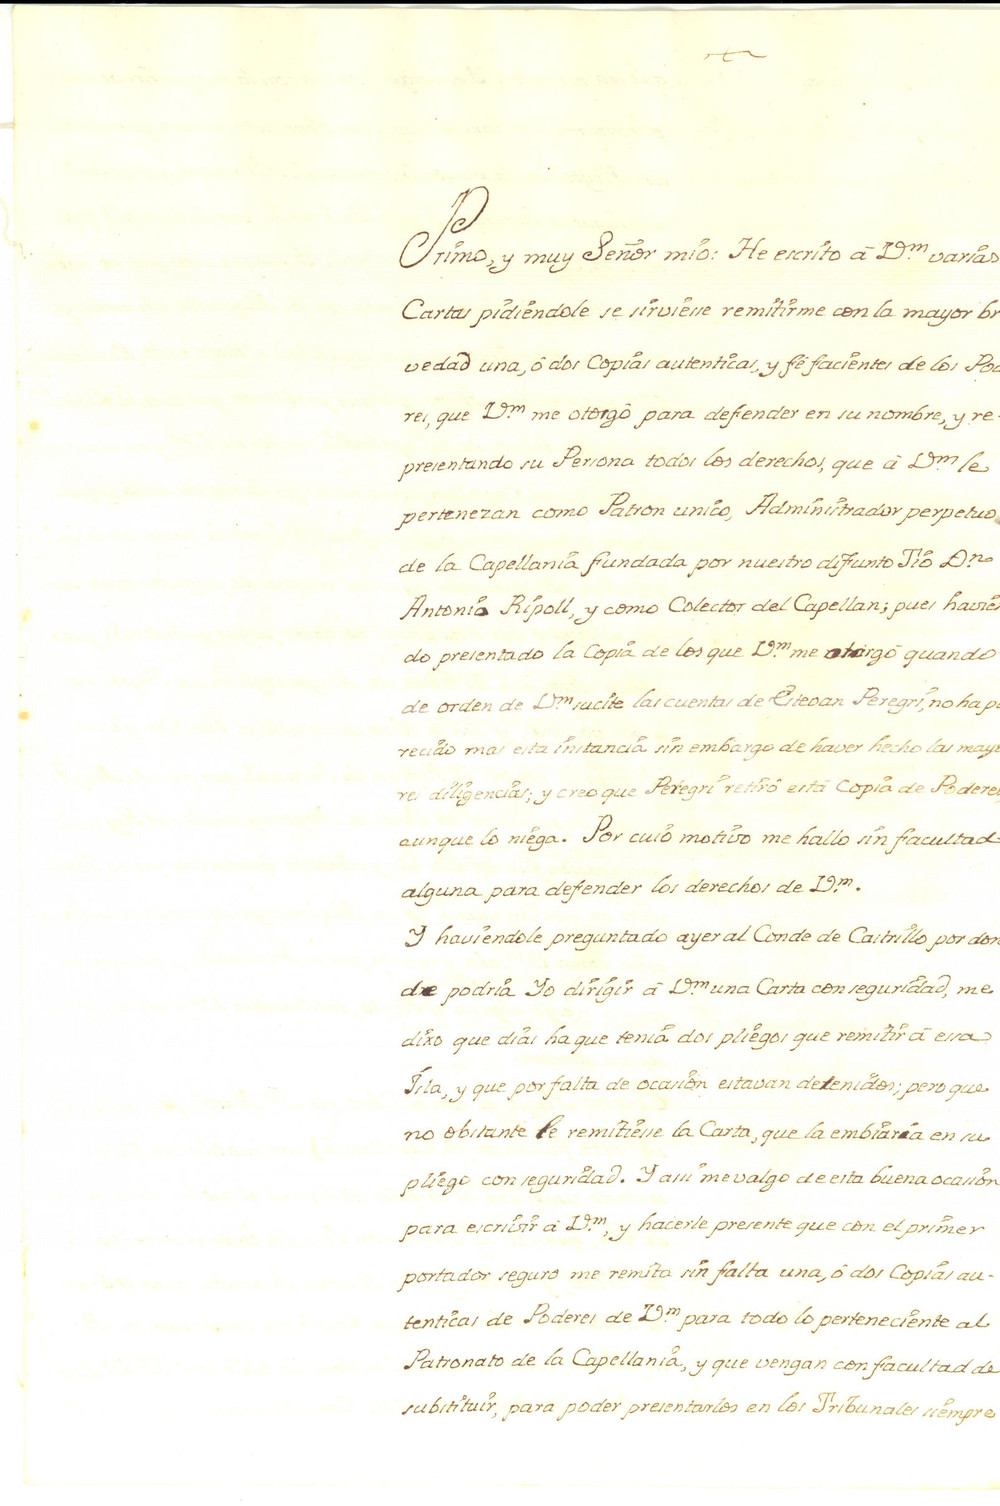 Primo, y muy Señor mio: He escrito â Vm varias
Cartas pidiendole se sirviesse remitirme con la mayor br
vedad una, ô dos Copias autenticas, y fê facientes de los Pod
res, que Vm me otorgô para defender en su nombre, y re-
presentando su Persona todos los derechos, que â Vm le
pertenezan como Patron unico, Administrador perpetuo
de la Capellania fundada por nuestro difunto Tio Dn
Antonio Ripoll, y como Colector del Capellan; pues havien
do presentado la Copia de los que Vm me otorgô quando
de orden de Vm sucite las cuentas de Estevan Peregrí, no ha pa
recido mas esta instancia sin embargo de haver hecho las mayo
res diligencias; y creo que Peregrí retirô esta Copia de Poderes,
aunque lo niega. Por cuio motivo me hallo sin facultad
alguna para defender los derechos de Vm.
Y haviendole preguntado ayer al Conde de Castrillo por don
de podria Yo dirigir â Vm una Carta con seguridad, me
dixo que dias ha que tenia dos pliegos que remitir â essa
Isla, y que por falta de ocasion estavan detenidos; pero que
no obstante le remitiesse la Carta, que la embiaria en su
pliego con seguridad. Y assi me valgo de esta buena ocasion
para escrivir â Vm, y hacerle presente que con el primer
portador seguro me remita sin falta una, ô dos Copias au-
tenticas de Poderes de Vm para todo lo perteneciente al
Patronato de la Capellania, y que vengan con facultad de
substituir, para poder presentarlos en los Tribunales siempre